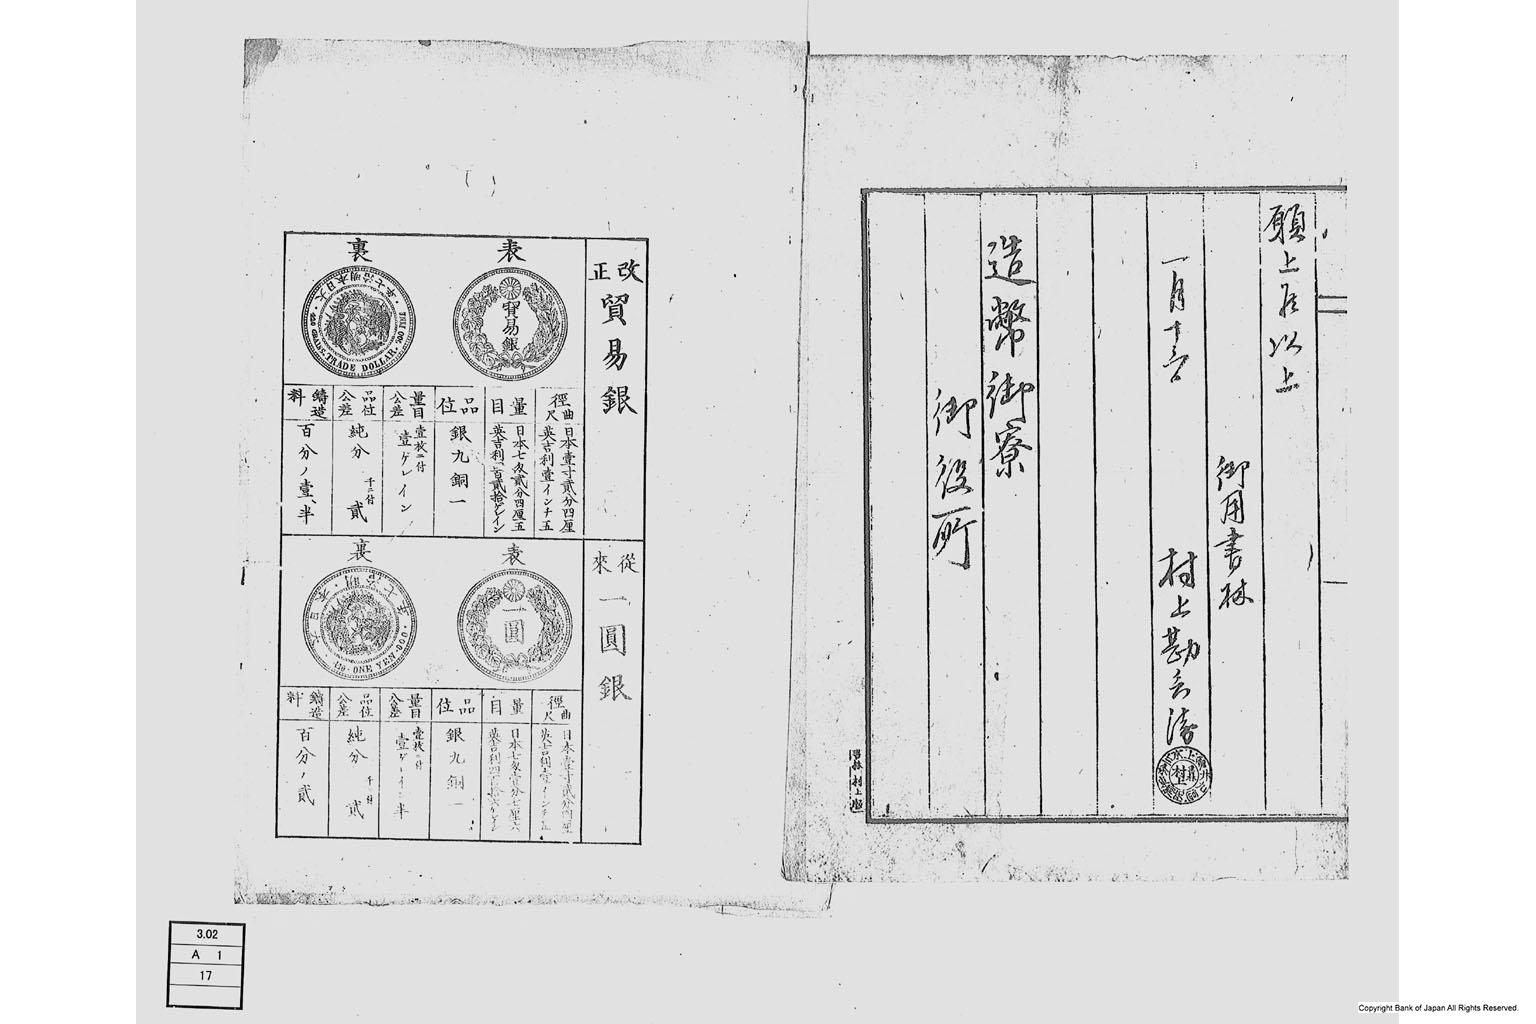 願上候以上
御用書林
一月十三日
村上勘兵衛
造幣御寮
御役所
書林 村上
改正 貿易銀
表
貿易銀
裏
大日本明治七年
420 GRAINS. TRADE DOLLAR. 900 FINE.
徑 曲尺
日本壹寸貳分四厘
英吉利壹インチ五
量目
日本七匁貳分四厘五
英吉利四百貳拾ゲレイン
品位
銀九銅一
量目公差
壹枚ニ付
壹ゲレイン
品位公差
純分 千ニ付 貳
鑄造料
百分ノ壹、半
從來 一圓銀
表
一圓
裏
大日本明治七年
416 ONE YEN 900
徑 曲尺
日本壹寸貳分四厘
英吉利壹インチ五
量目
日本七匁壹分七厘六
英吉利四百十六ゲレイン
品位
銀九銅一
量目公差
壹枚ニ付
壹ゲレイン半
品位公差
純分 千ニ付 貳
鑄造料
百分ノ貳
3.02
A 1
17
Copyright Bank of Japan All Rights Reserved.